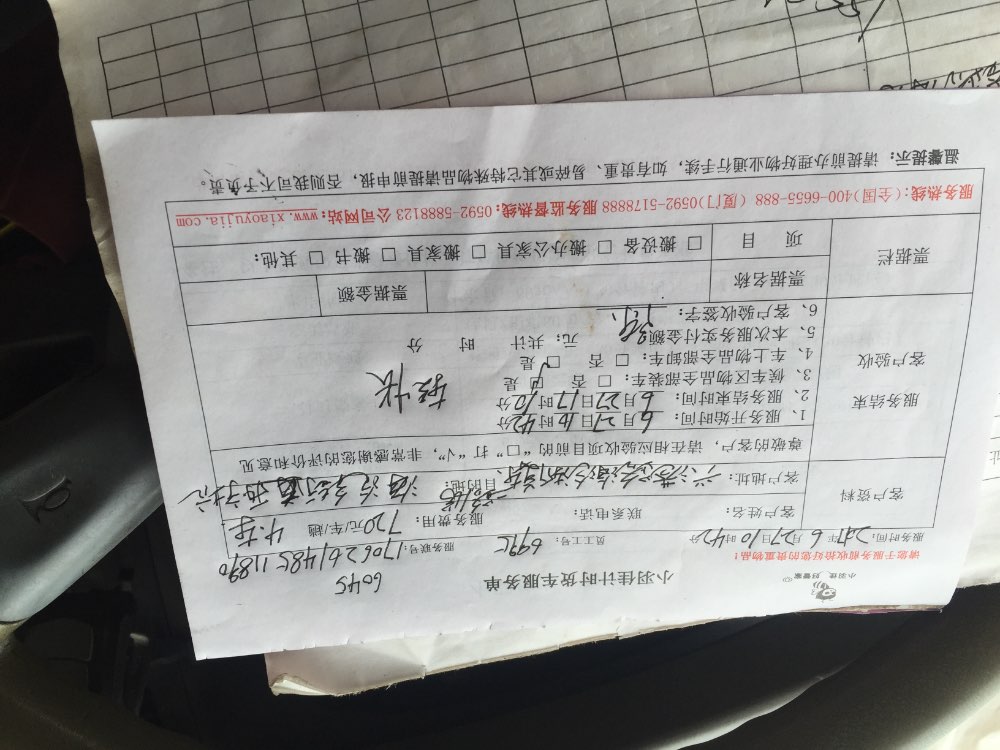 小羽佳计时货车服务单
6045
请您于服务前收拾好您的贵重物品!
服务时间: 2017年6月27日10时42分 员工工号: 服务联号: 170626148511890
客户资料
客户姓名: 联系电话: 服务费用: 720元/车/趟
客户地址: 目的地:
尊敬的客户, 请在相应验收项目前的“□”打“√”, 非常感谢您的评价和意见
服务结束
客户验收
1、服务开始时间: 6月27日 时42分
2、服务结束时间: 6月27日17时10分
3、候车区物品全部装车: □ 否 □ 是
4、车上物品全部卸车: □ 否 □ 是
5、本次服务实付金额 元; 共计 时 分
6、客户验收签字:
票据栏
票据名称 票据金额
项 目 □ 搬设备 □ 搬办公家具 □ 搬家具 □ 搬书 □ 其他:
服务热线:(全国)400-6655-888 (厦门)0592-5178888 服务监督热线: 0592-5888123 公司网站: www.xiaoyujia.com
温馨提示: 请提前办理好物业通行手续, 如有贵重、易碎或其它特殊物品请提前申报, 否则我司不予负责。